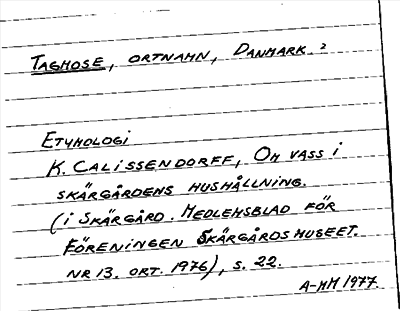 TAGHOSE, ORTNAMN, DANMARK ?
ETYMOLOGI
K. CALISSENDORFF, OM VASS I
SKÄRGÅRDENS HUSHÅLLNING.
(I SKÄRGÅRD. MEDLEMSBLAD FÖR
FÖRENINGEN SKÄRGÅRDSMUSEET.
NR 13. OKT. 1976), S. 22.
A-MM 1977